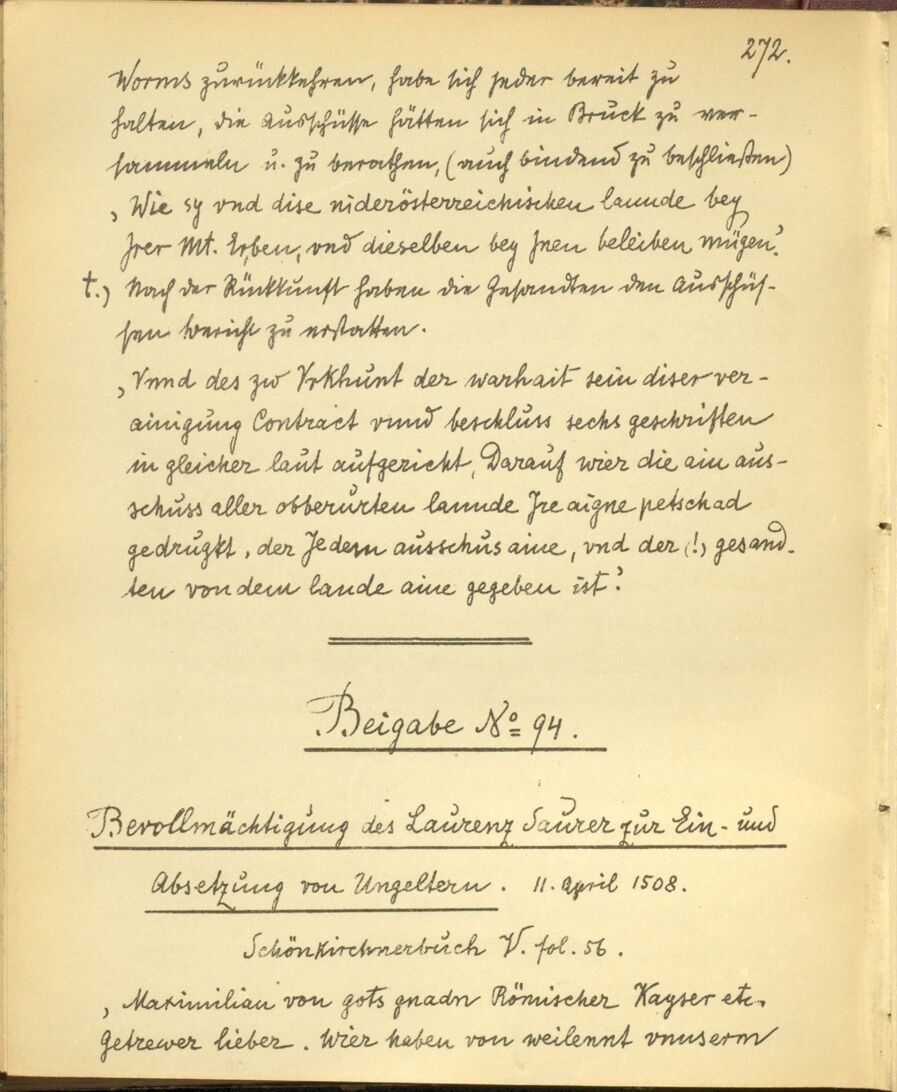 272.
Worms zurückkehren, habe sich jeder bereit zu
halten, die Ausschüsse hätten sich in Bruck zu ver-
sammeln u. zu berathen, (auch bindend zu beschließen)
‚Wie sy vnd dise niderösterreichischen lannde bey
Jrer Mt. Erben, vnd dieselben bey Jnen beleiben mügen‘.
t.) Nach der Rückkunft haben die Gesandten den Ausschüs-
sen Bericht zu erstatten.
‚Vnnd des zw Vrkhunt der warhait sein diser ver-
ainigung Contract vnnd beschluss sechs geschriften
in gleicher laut aufgericht, Darauf wier die ain aus-
schuss aller obberurten lannde Jre aigne petschad
gedrugkt, der Jedem ausschus aine, vnd der (!) gesand-
ten von dem lande aine gegeben ist‘.
Beigabe No 94.
Bevollmächtigung des Laurenz Saurer zur Ein- und
Absetzung von Ungeltern. 11. April 1508.
Schönkirchnerbuch V. fol. 56.
‚Maximilian von gots gnadn Römischer Kayser etc.
Getrewer lieber. Wier haben von weilennt vnnserm